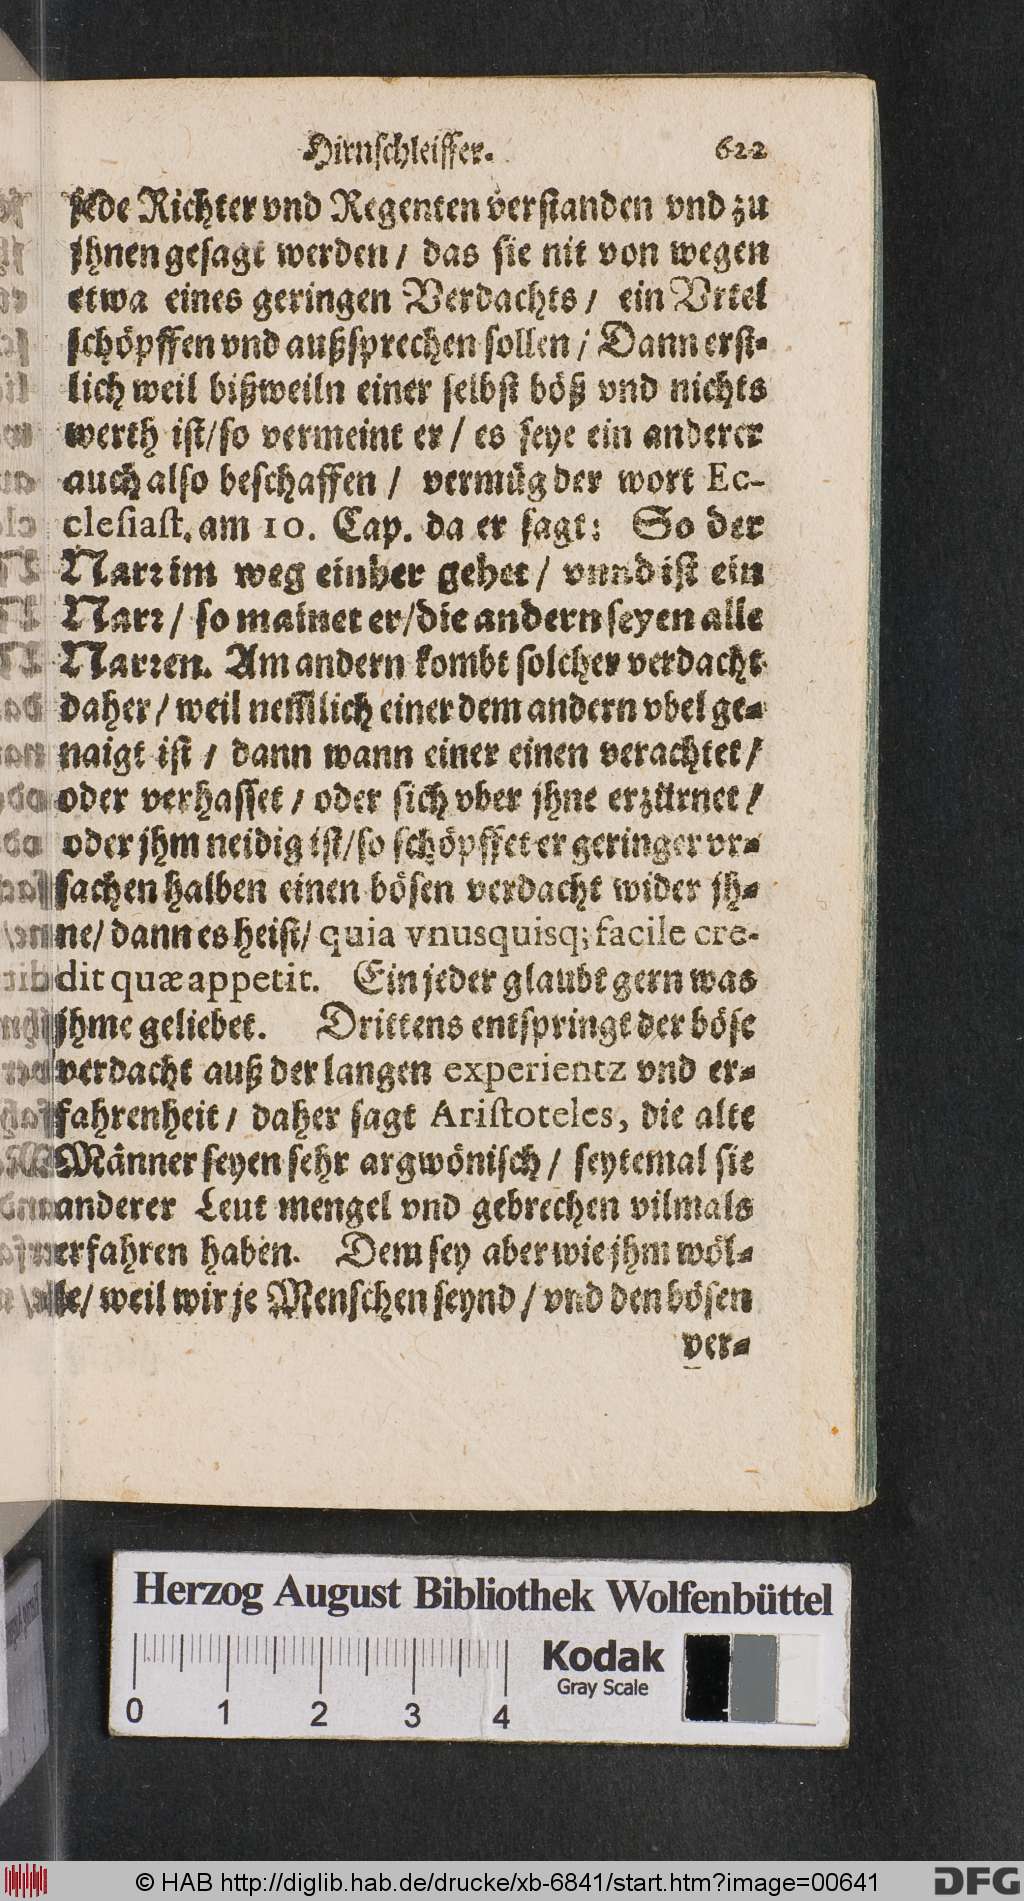 Hirnschleiffer. 622
jede Richter vnd Regenten verstanden vnd zu
jhnen gesagt werden / das sie nit von wegen
etwa eines geringen Verdachts / ein Vrtel
schöpffen vnd außsprechen sollen / Dann erst-
lich weil bißweiln einer selbst böß vnd nichts
werth ist / so vermeint er / es seye ein anderer
auch also beschaffen / vermüg der wort Ec-
clesiast. am 10. Cap. da er sagt: So der
Narr im weg einher gehet / vnnd ist ein
Narr / so mainet er / die andern seyen alle
Narren. Am andern kombt solcher verdacht
daher / weil nemlich einer dem andern vbel ge-
naigt ist / dann wann einer einen verachtet /
oder verhasset / oder sich vber jhne erzürnet /
oder jhm neidig ist / so schöpffet er geringer vr-
sachen halben einen bösen verdacht wider jh-
ne / dann es heist / quia vnusquisq; facile cre-
dit quæ appetit. Ein jeder glaubt gern was
jhme geliebet. Drittens entspringt der böse
verdacht auß der langen experientz vnd er-
fahrenheit / daher sagt Aristoteles, die alte
Männer seyen sehr argwönisch / seytemal sie
anderer Leut mengel vnd gebrechen vilmals
erfahren haben. Dem sey aber wie jhm wöl-
le / weil wir je Menschen seynd / vnd den bösen
ver-
Herzog August Bibliothek Wolfenbüttel
Kodak
Gray Scale
0 1 2 3 4
© HAB http://diglib.hab.de/drucke/xb-6841/start.htm?image=00641
DFG